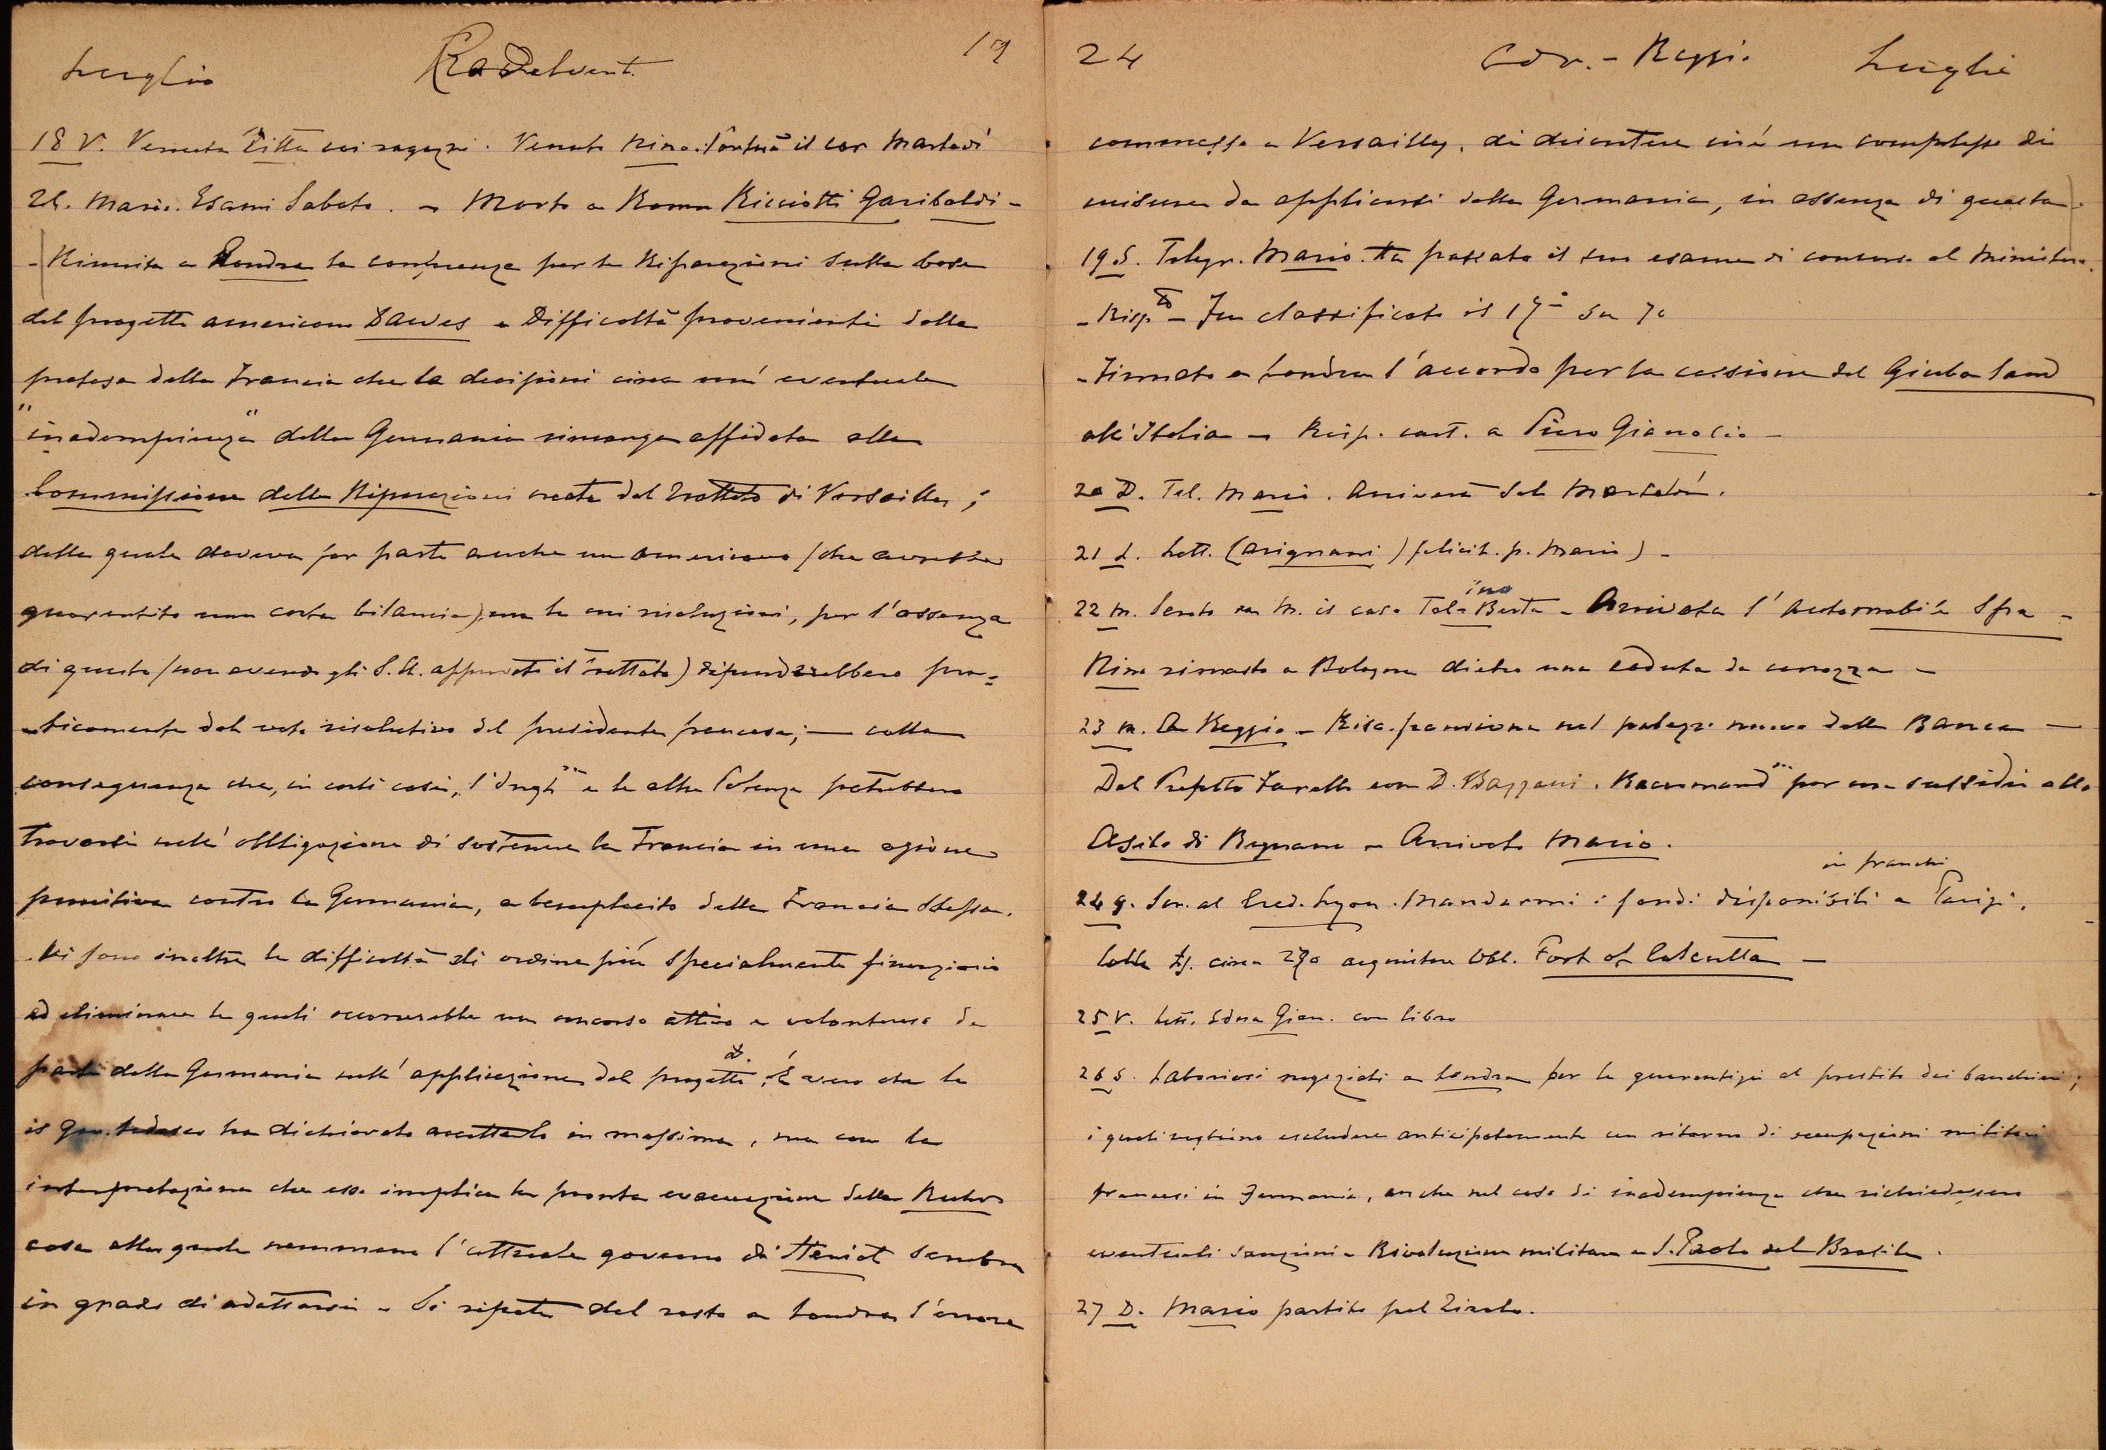 Luglio 19
18 V. Venuta Titta coi ragazzi. Venuto Nino. il cor Martedì
Mario. Esami Sabato. - Morto a Roma Ricciotti Garibaldi -
- Riunita a Londra la conferenza per le Riparazioni sulla base
del progetto americano Dawes - Difficoltà provenienti dalla
pretesa della Francia che le decisioni circa un' eventuale
"inadempienza" della Germania rimanga affidata alla
Commissione delle Riparazioni creata dal Trattato di Versailles;
della quale doveva far parte anche un americano (che avrebbe
guarentito una certa bilancia), ma le cui risoluzioni, per l'assenza
di questo (non avendo gli S.U. approvato il trattato) dipenderebbero pra=
=ticamente dal voto risolutivo del presidente francese; — colla
conseguenza che, in certi casi, l'Ingh. e le altre Potenze potrebbero
trovarsi nell'obbligazione di sostenere la Francia in una azione
punitiva contro la Germania, a beneplacito della Francia stessa.
Vi sono inoltre le difficoltà di ordine più specialmente finanziario
ad eliminare le quali occorrerebbe un concorso attivo e volonteroso da
parte della Germania nell'applicazione del progetto D. È vero che le
il gov. tedesco ha dichiarato accettarlo in massima, ma con la
interpretazione che esso implica la pronta evacuazione della Ruhr
cosa alla quale nemmeno l'attuale governo di Herriot sembra
in grado di adattarsi - Si ripete del resto a Londra l'errore
24 Cor. - Reggio Luglio
commesso a Versailles, di discutere cioè un complesso di
misure da applicarsi dalla Germania, in assenza di questa.
19 S. Telegr. Mario. Ha passato il suo esame di concorso al Ministero.
- Risp. - Fu classificato il 17° su 70
- Firmato a Londra l'accordo per la cessione del Giuba land
all'Italia - Risp. cart. a Piero Gianolio -
20 D. Tel. Mario. Arriverà sol Martedì.
21 L. Lett. (Arignani) felicit. p. Mario) -
22 M. il caso Berta - Arrivata l'automobile Spa -
Nino rimasto a Bologna dietro una caduta da carrozza -
23 M. A Reggio - Risc. pensione nel palazzo nuovo della Banca —
Dal Prefetto Farello con D. Bazzani. Raccomand. per un sussidio allo
Asilo di Regnano - Arrivato Mario.
in franchi
24 G. Scr. al Cred. Lyon. Mandarmi i fondi disponibili a Parigi.
Colle Ls. circa 270 acquistare Obl. Port of Calcutta —
25 V. Lett. Edna Gian. con libro
26 S. Laboriosi negoziati a Londra per le guarentigie al prestito dei banchieri;
i quali vogliono escludere anticipatamente un ritorno di occupazioni militari
francesi in Germania, anche nel caso di inadempienza che richiedessero
eventuali sanzioni - Rivoluzione militare a S. Paolo del Brasile.
27 D. Mario partito pel Tirolo.